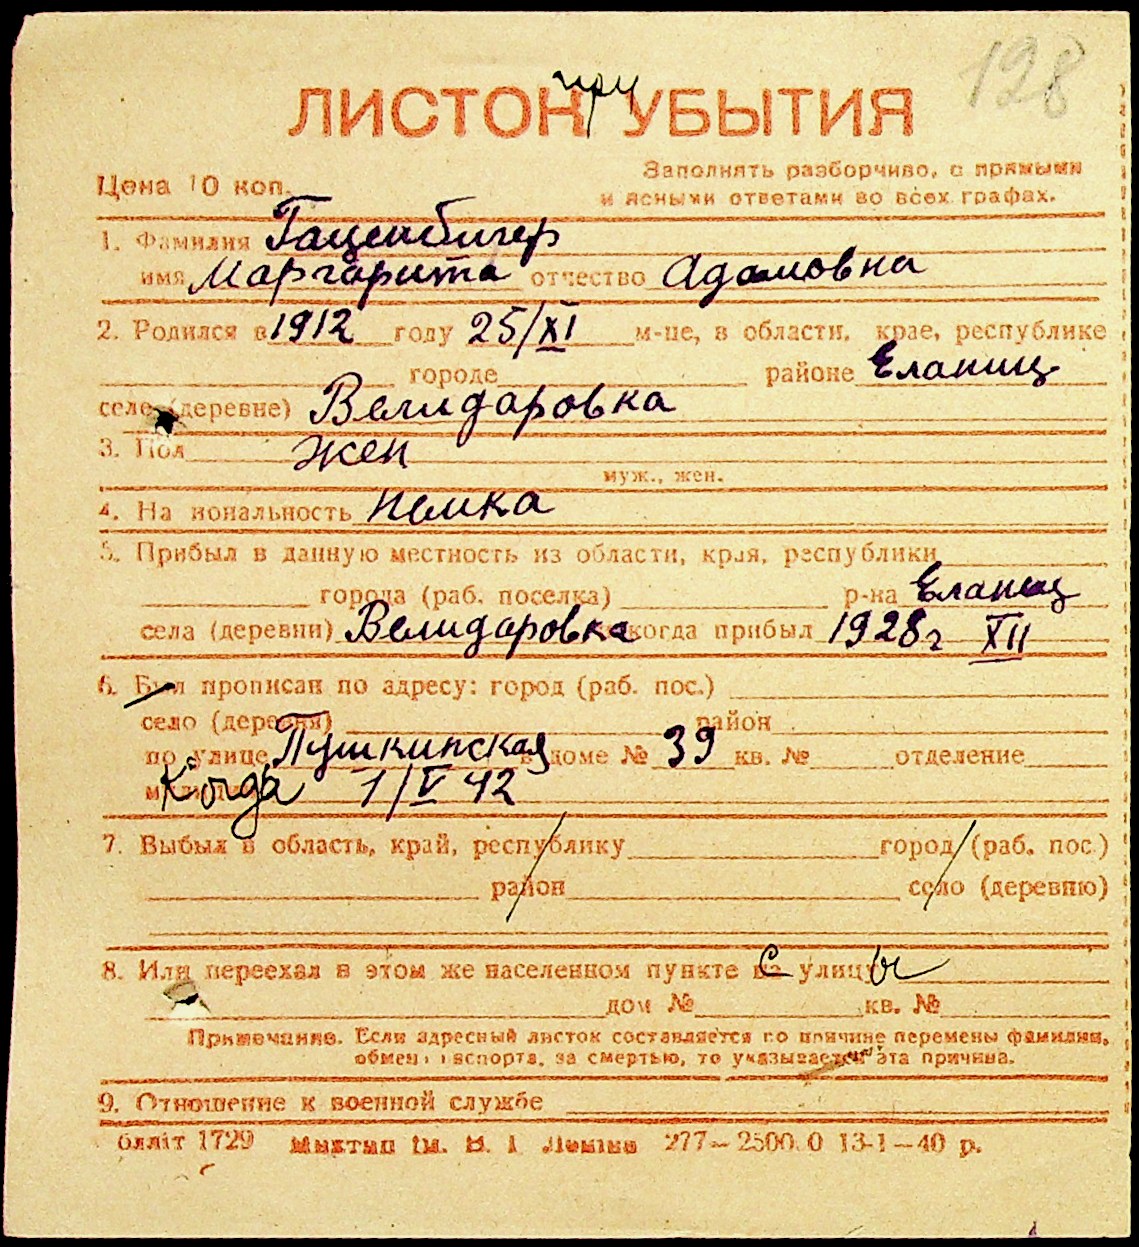 128
ЛИСТОК при УБЫТИЯ
Цена 10 коп.
Заполнять разборчиво, с прямыми
и ясными ответами во всех графах.
1. Фамилия Гаценбигер
имя Маргарита отчество Адамовна
2. Родился в 1912 году 25/XI м-це, в области, крае, республике
городе районе Еланиц
селе (деревне) Велидаровка
3. Пол жен
муж., жен.
4. На иональность немка
5. Прибыл в данную местность из области, края, республики
города (раб. поселка) р-на Еланец
села (деревни) Велидаровка когда прибыл 1928 г XII
6. Был прописан по адресу: город (раб. пос.)
село (деревня) район
по улице Пушкинская в доме № 39 кв. № отделение
Когда 1/V 42
7. Выбыл в область, край, республику город (раб. пос.)
район село (деревню)
8. Или переехал в этом же населенном пункте с улицы
дом № кв. №
Примечание. Если адресный листок составляется по причине перемены фамилии,
обмен паспорта, за смертью, то указывается эта причина.
9. Отношение к военной службе
блліт 1729 277–2500.0 13-1–40 р.